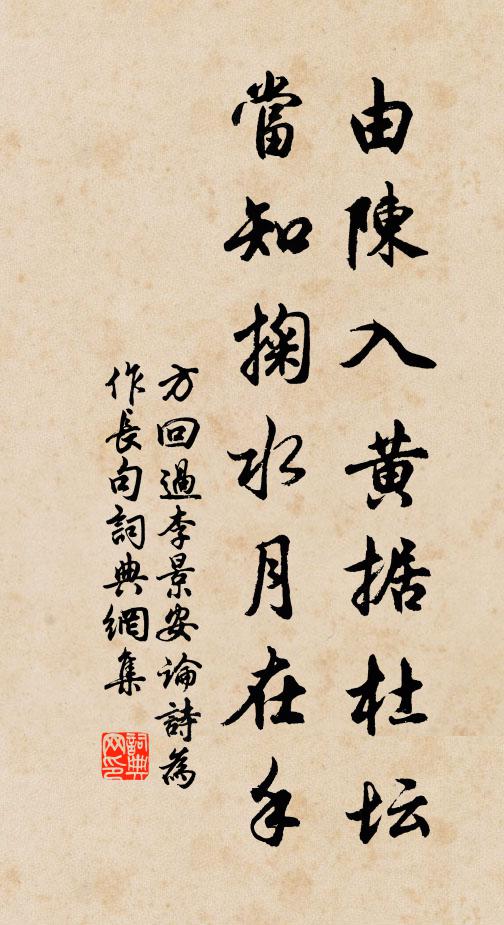 由陳入黄据杜坛
當知掬水月在手
方回過李景安論詩為
作長句詞典網集
詞典網印